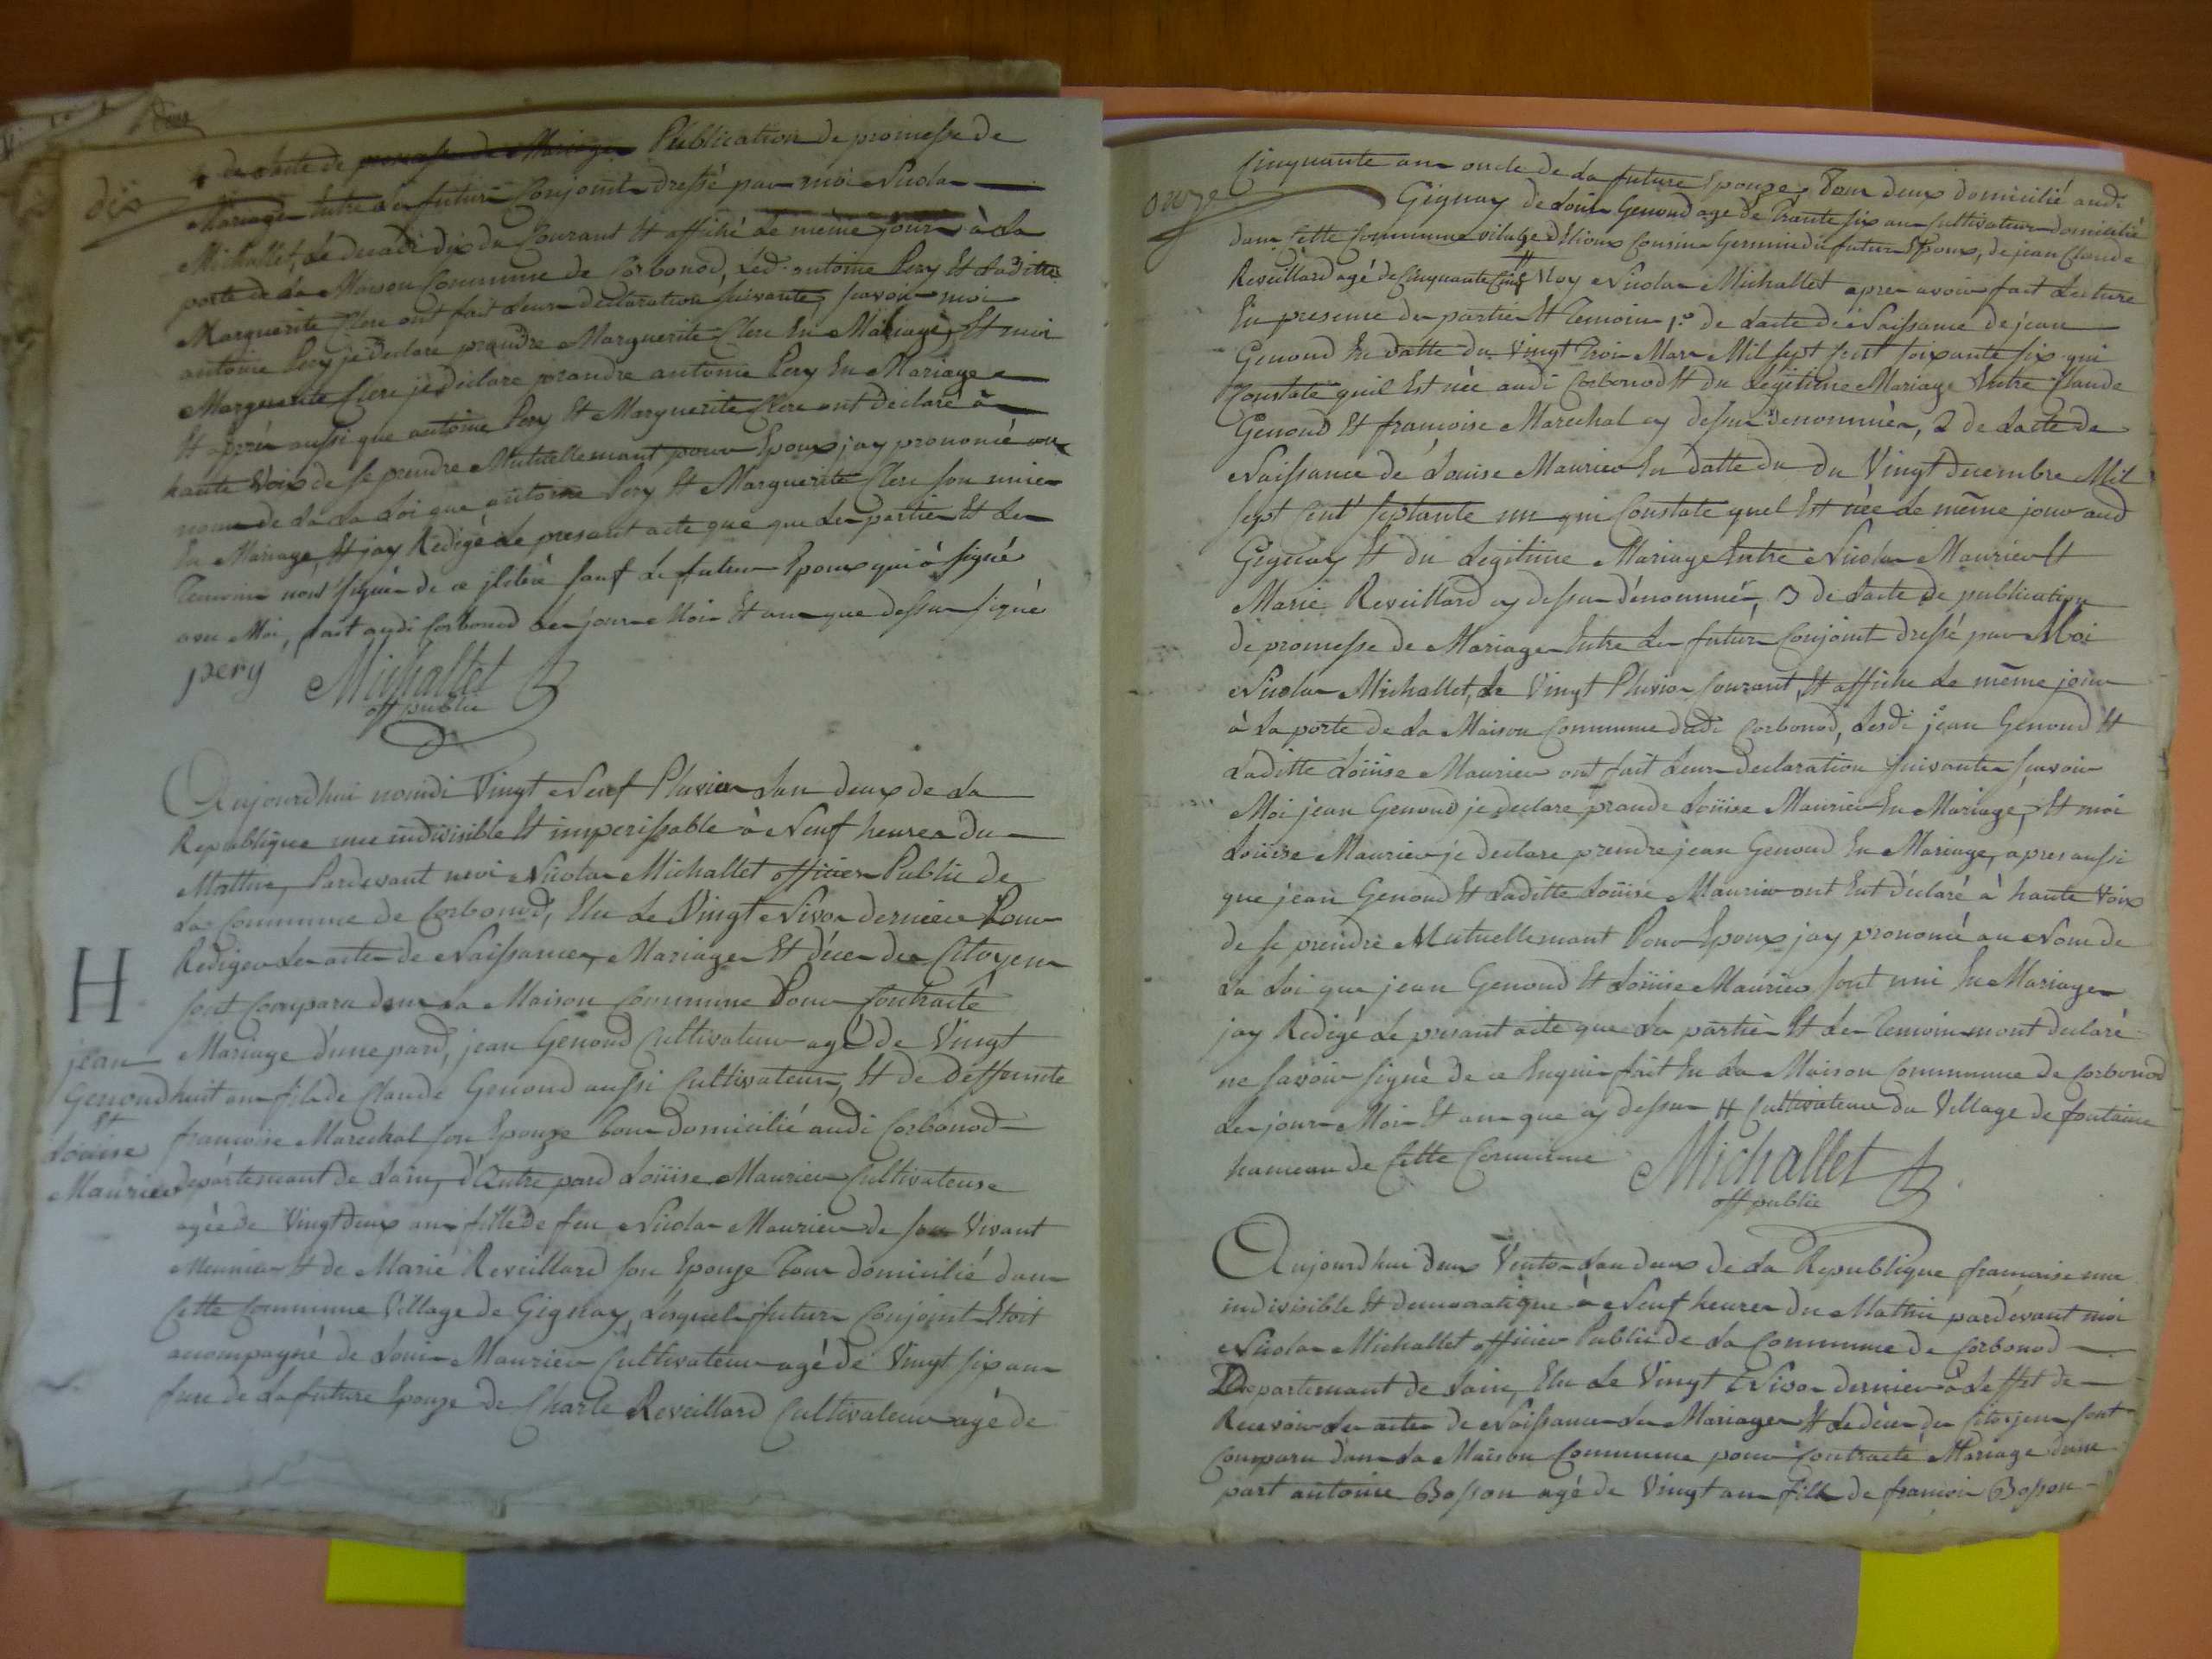 dix
4 de Lacte de promesse de Mariage Publication de promesse de
Mariage Entre Les futurs Conjoints dressé par moi Nicolas
Michallet, Le decadi dix du Courant Et affiché Le même jour à La
porte de La Maison Commune de Corbonod, Led. antoine Pery Et Laditte
Marguerite Clerc ont fait Leurs declaration suivante, savoir moi
antoine Pery je déclare prendre Marguerite Clerc En Mariage, Et moi
Marguerite Clerc je déclare prandre antoine Pery En Mariage
Et après aussi que antoine Pery Et Marguerite Clerc ont déclaré à
haute Voix de se prendre Mutuellemant pour Epoux jay prononcé au
nom de La La Loi que antoine Pery Et Marguerite Clerc son unies
En Mariage, Et jay Redigé Le presant acte que que Les parties Et Les
Temoins nont signés de ce sauf Le futur Epoux qui à signé
avec Moi, fait audi Corbonod Les jours Mois Et ans que dessus signé
pery Michallet
off public
Aujourdhui nonidi Vingt Neuf Pluvios Lan deux de La
Republique une indivisible Et imperissable à Neuf heures du
Mattin, Pardevant moi Nicolas Michallet officier Public de
La Commune de Corbonod, Elu Le Vingt Nivos dernier Pour
Rediger Les actes de Naissances, Mariages Et déces des Citoyens
H
sont Comparu dans La Maison Commune Pour Contracté
jean
Genoud
Et
Loüise
Maurier
Mariage d'une pard, jean Genoud Cultivateur agé de Vingt
huit ans fils de Claude Genoud aussi Cultivateur, Et de Deffunte
francoise Marechal son Epouze tous domicilié audi Corbonod
departemant de Lain, d'Autre pard Loüise Maurier Cultivateuse
agée de Vingt deux ans fille de feu Nicolas Maurier de son Vivant
Meunier Et de Marie Reveillard son Epouze tous domicilié dans
Cette Commune Village de Gignay, Lesquels futurs Conjoint Etoit
acompagné de Louis Maurier Cultivateur agé de Vingt six ans
frere de La future Epouze de Charle Reveillard Cultivateur agé de
onze
Cinquante ans oncle de La future Epouze, tous deux domicilié audi
Gignay de Louis Genoud agé de Trante six ans Cultivateur domicilié
dans Cette Commune vilalge Cousin Germin du futur Epoux, de jean Claude
Reveillard agé de Cinquante Cinq H Moy Nicolas Michallet apres avoir fait Lecture
En presence des parties Et Temoins 1.º de Lacte de Naissance de jean
Genoud En datte du Vingt Trois Mars Mil sept Cent soixante six qui
Constate quil Est née audi Corbonod Et du Legitime Mariage Entre Claude
Genoud Et francoise Marechal cy dessus denommés, 2 de Lacte de
Naissance de Louise Maurier En datte du du Vingt decembre Mil
sept Cent septante un qui Constate quel Est née Le même jour aud
Gignay Et du Legitime Mariage Entre Nicolas Maurier Et
Marie Reveillard cy dessus dénommé, 3 de Lacte de publication
de promesse de Mariage Entre Les futurs Conjoint dressé par Moi
Nicolas Michallet, Le Vingt Pluvios Courant, Et affiche Le même jour
à La porte de La Maison Commune dudi Corbonod, Lesdi jean Genoud Et
Laditte Loüise Maurier ont fait Leurs declaration suivante savoir
Moi jean Genoud je declare prandre Loüise Maurier En Mariage, Et moi
Loüise Maurier je declare prendre jean Genoud En Mariage, apres aussi
que jean Genoud Et Laditte Loüise Maurier ont Eut déclaré à haute Voix
de se prendre Mutuellemant Pour Epoux jay prononcé au Nom de
La Loi que jean Genoud Et Loüise Maurier sont uni En Mariage
jay Redigé Le presant acte que Les parties Et Les Temoins mont declaré
ne savoir signé de ce Enquis fait En La Maison Commune de Corbonod
Les jours Mois Et ans que cy dessus H Cultivateur du Village de fontaine
hameau de Cette Commune Michallet
off public
Aujourdhui deux Ventos Lan deux de La Republique francaise une
indivisible Et democratique à Neuf heures du Mattin pardevant moi
Nicolas Michallet officier Public de La Commune de Corbonod
Departemant de Lain, Elu Le Vingt Nivos dernier à Leffet de
Recevoir Les actes de Naissances Les Mariages Et Le déces des Citoyens sont
Comparu dans La Maison Commune pour Contracté Mariage dune
part antoine Bosson agé de Vingt ans fils de francois Bosson